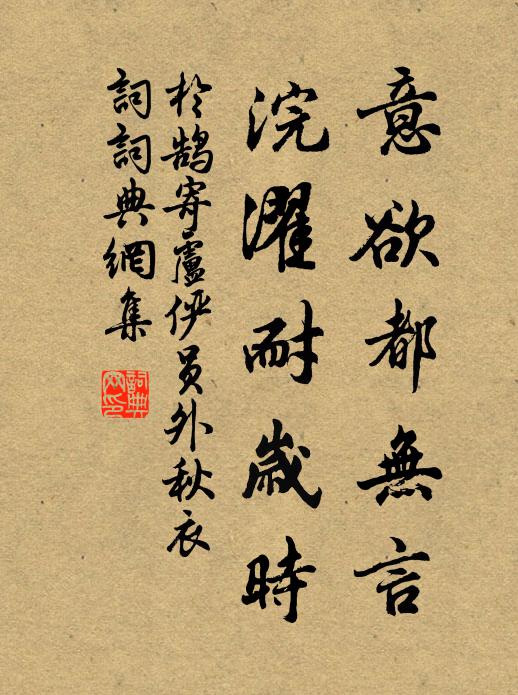 意欲都無言
浣濯耐歲時
於鵠寄盧俨員外秋衣
詞詞典網集
詞典
网印